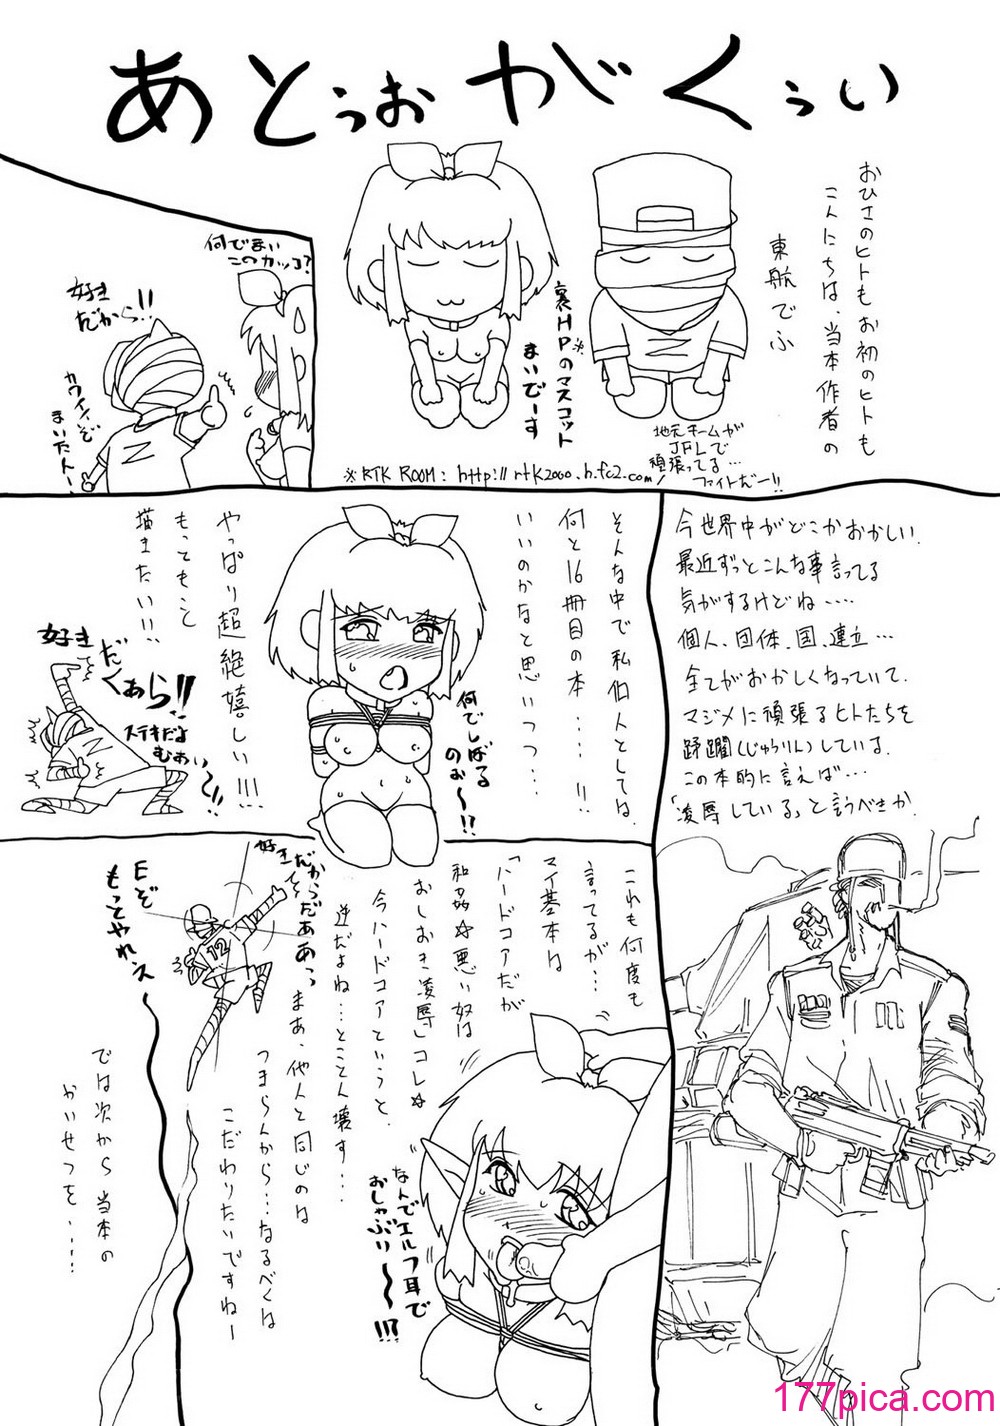 あとぅおがくぅい
おひさのヒトもお初のヒトも
こんにちは、当本作者の
東航でふ
裏HPのマスコット※
まいでーす
地元チームが
JFLで
頑張ってる…
ファイトだー!!
※RTK ROOM: http://rtk2000.h.fc2.com/
何でまい
このカッコ?
好き
だから!!
カワイイぞ
まいたん!
今世界中がどこかおかしい。
最近ずっとこんな事言ってる
気がするけどね‥‥
個人、団体、国、連立…
全てがおかしくなっていて、
マジメに頑張るヒトたちを
蹂躙(じゅうりん)している。
この本的に言えば…
「凌辱している」と言うべきか。
そんな中で私個人としては、
何と16冊目の本‥‥!!
いいのかなと思いつつ…
やっぱり超絶嬉しい!!!
もってもっと
描きたい!!
何でしばる
のぉ〜!?
好き
だくぁら!!
ステキだよ
むぁい〜!!
これも何度も
言ってるが…
マイ基本は
「ハードコアだが
和姦☆悪い奴は
おしおき凌辱」コレ☆
今ハードコアというと、
逆だよね…とことん壊す…
まあ、他人と同じのは
つまらんから…なるべくは
こだわりたいですねー
なんでエルフ耳で
おしゃぶり〜!!?
好き
だからだああっ
12
Eぞ
もっとやれぇ〜
では次から当本の
かいせつを‥‥
177pica.com